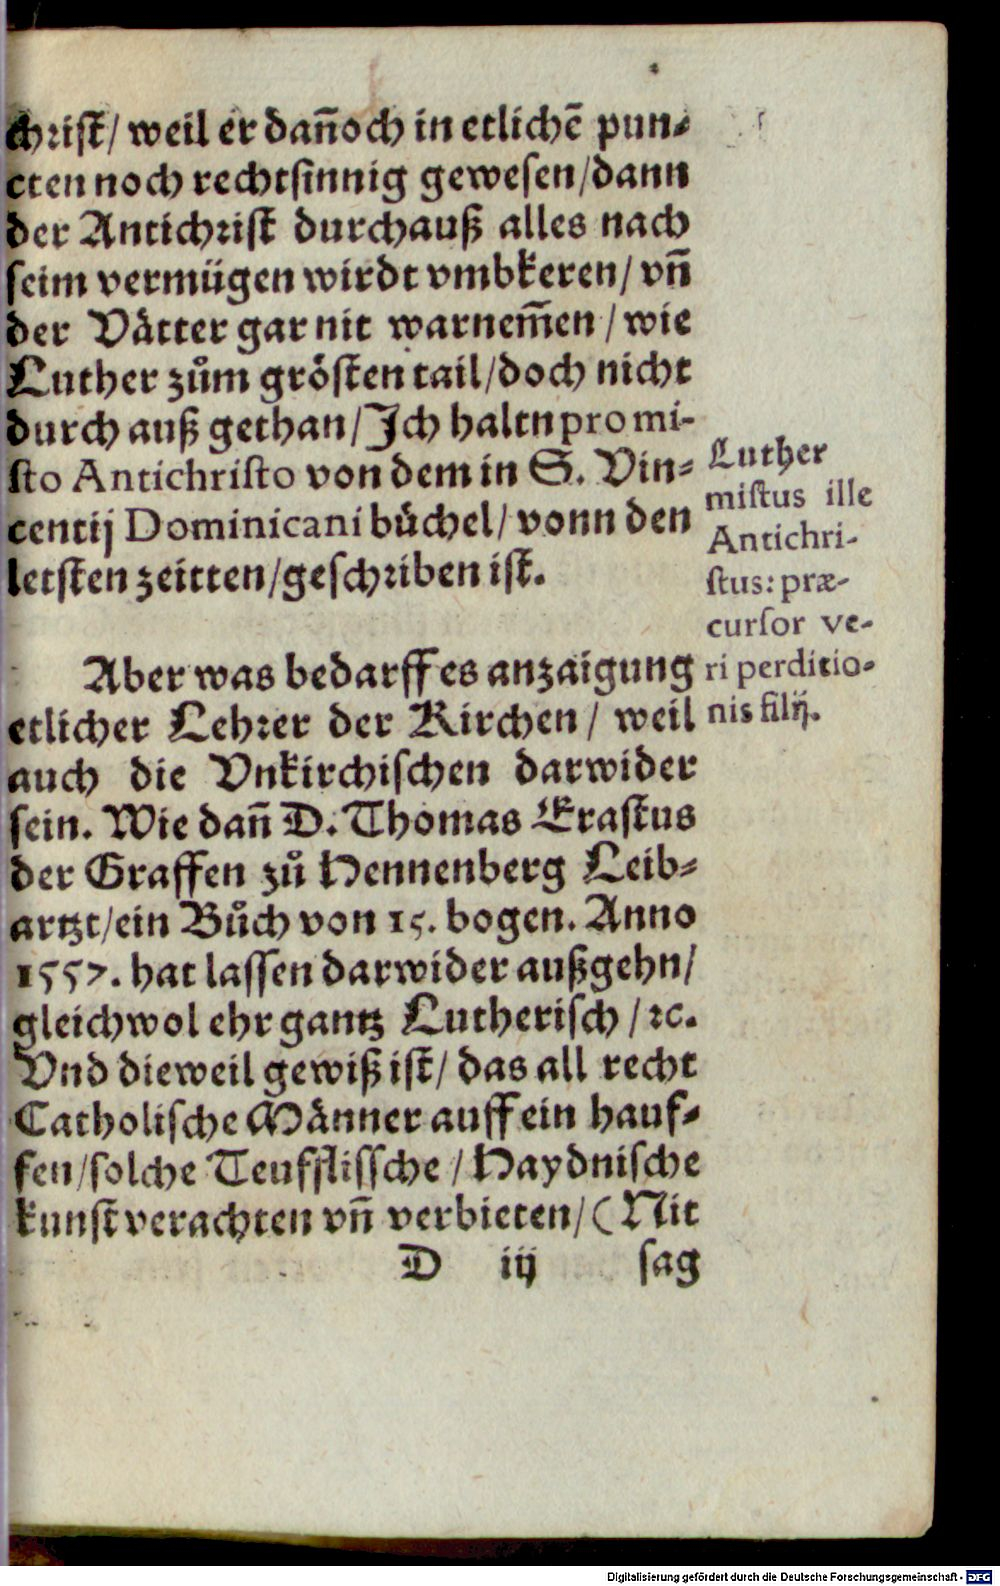 christ/ weil er dañoch in etlichẽ pun-
cten noch rechtsinnig gewesen/dann
der Antichrist durchauß alles nach
seim vermügen wirdt vmbkeren/ vñ
der Vätter gar nit warnem̃en / wie
Luther zům grösten tail/doch nicht
durch auß gethan/ Ich haltn pro mi-
sto Antichristo von dem in S. Vin-
centij Dominicani büchel/ vonn den
letsten zeitten/geschriben ist.
Luther
mistus ille
Antichri-
stus: præ-
cursor ve-
ri perditio-
nis filij.
Aber was bedarff es anzaigung
etlicher Lehrer der Kirchen / weil
auch die Vnkirchischen darwider
sein. Wie dañ D. Thomas Erastus
der Graffen zů Hennenberg Leib-
artzt/ein Bůch von 15. bogen. Anno
1557. hat lassen darwider außgehn/
gleichwol ehr gantz Lutherisch / ꝛc.
Vnd dieweil gewiß ist/ das all recht
Catholische Männer auff ein hauf-
fen/solche Teufflissche / Haydnische
kunst verachten vñ verbieten/ (Nit
D iij sag
Digitalisierung gefördert durch die Deutsche Forschungsgemeinschaft - DFG